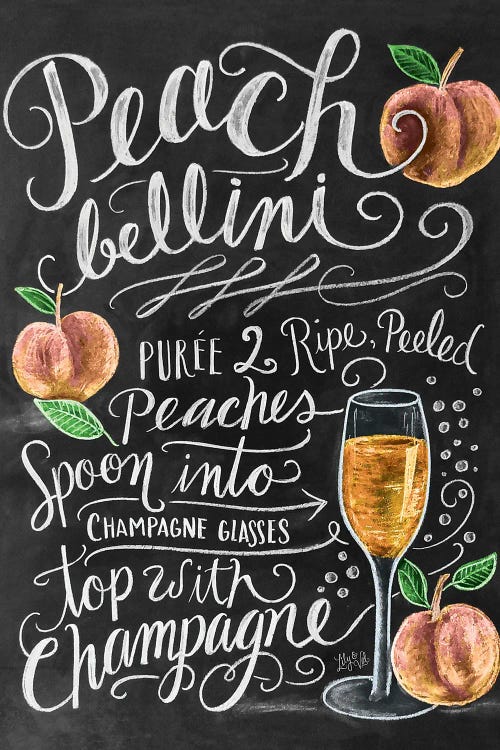 Peach
bellini
PURÉE 2 Ripe, Peeled
Peaches
Spoon into
CHAMPAGNE GLASSES
top with
Champagne
Lily & Val